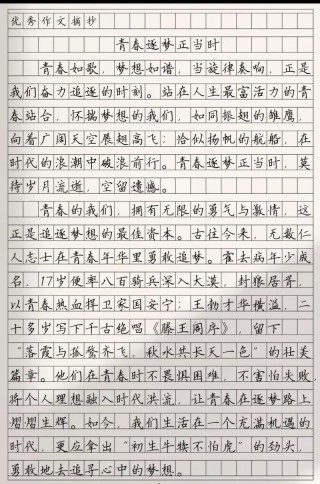 优秀作文摘抄
青春逐梦正当时
青春如歌，梦想如谱，当旋律奏响，正是
我们奋力追逐的时刻。站在人生最富活力的青
春站台，怀揣梦想的我们，如同振翅的雏鹰，
向着广阔天空展翅高飞；恰似扬帆的航船，在
时代的浪潮中破浪前行。青春逐梦正当时，莫
待岁月流逝，空留遗憾。
青春的我们，拥有无限的勇气与激情，这
正是追逐梦想的最佳资本。古往今来，无数仁
人志士在青春年华里勇敢追梦。霍去病年少成
名，17岁便率八百骑兵深入大漠，封狼居胥，
以青春热血捍卫家国安宁；王勃才华横溢，二
十多岁写下千古绝唱《滕王阁序》，留下
“落霞与孤鹜齐飞，秋水共长天一色”的壮美
篇章。他们在青春时不畏惧困难，不害怕失败，
将个人理想融入时代洪流，让青春在逐梦路上
熠熠生辉。如今，我们生活在一个充满机遇的
时代，更应拿出“初生牛犊不怕虎”的劲头，
勇敢地去追寻心中的梦想。